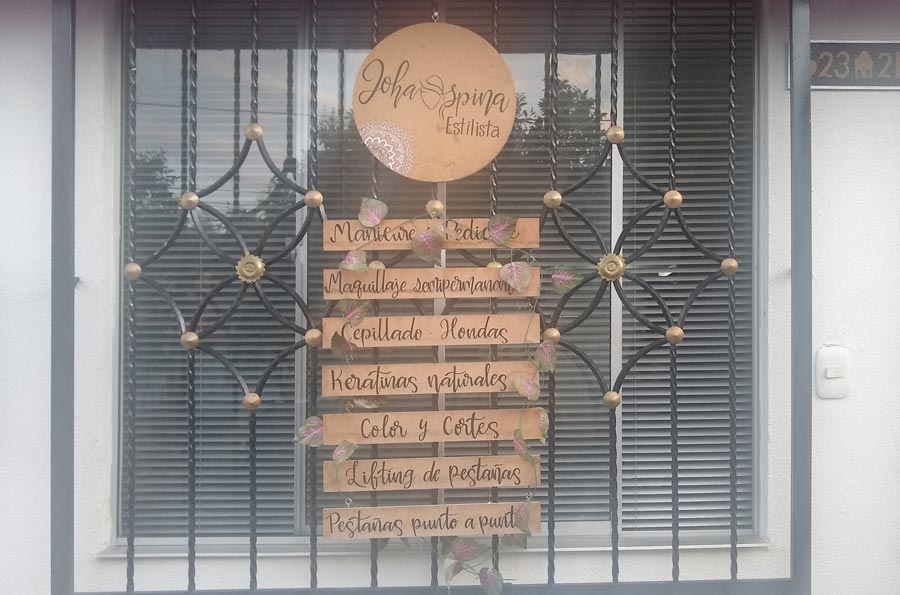 Joha Ospina
Estilista
Manicure y Pedicure
Maquillaje semipermanante
Cepillado - Hondas
Keratinas naturales
Color y Cortes
Lifting de pestañas
Pestañas punto a punto
23 21